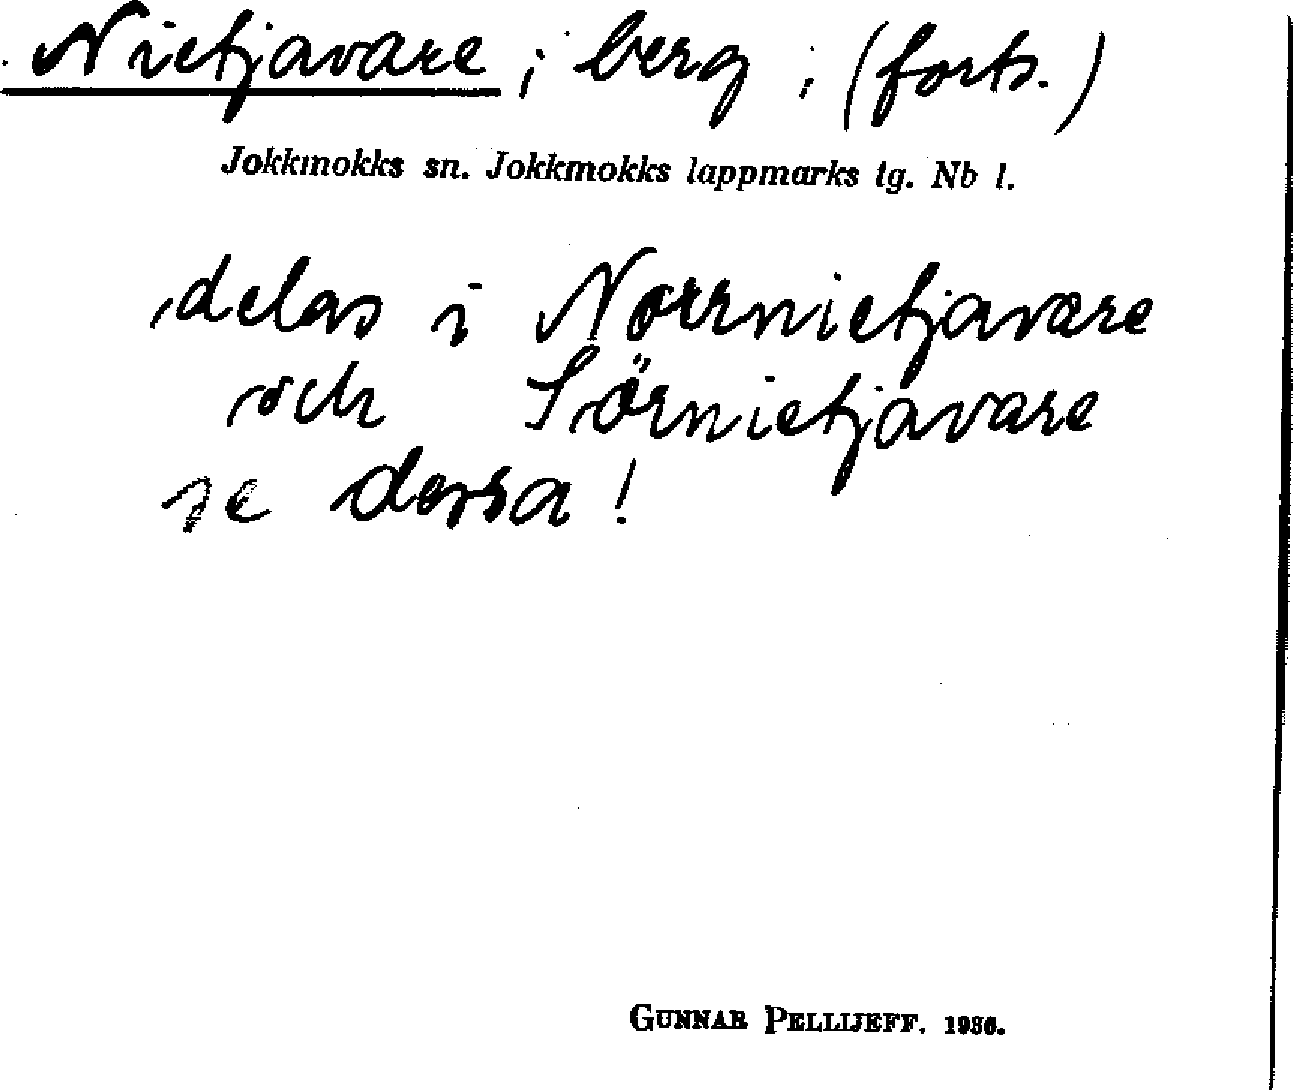 Nietjavare ; berg ; (forts.)
Jokkmokks sn. Jokkmokks lappmarks tg. Nb l.
delas i Norrnietjavare
och Sörnietjavare
se dessa !
GUNNAR PELLIJEFF. 1936.